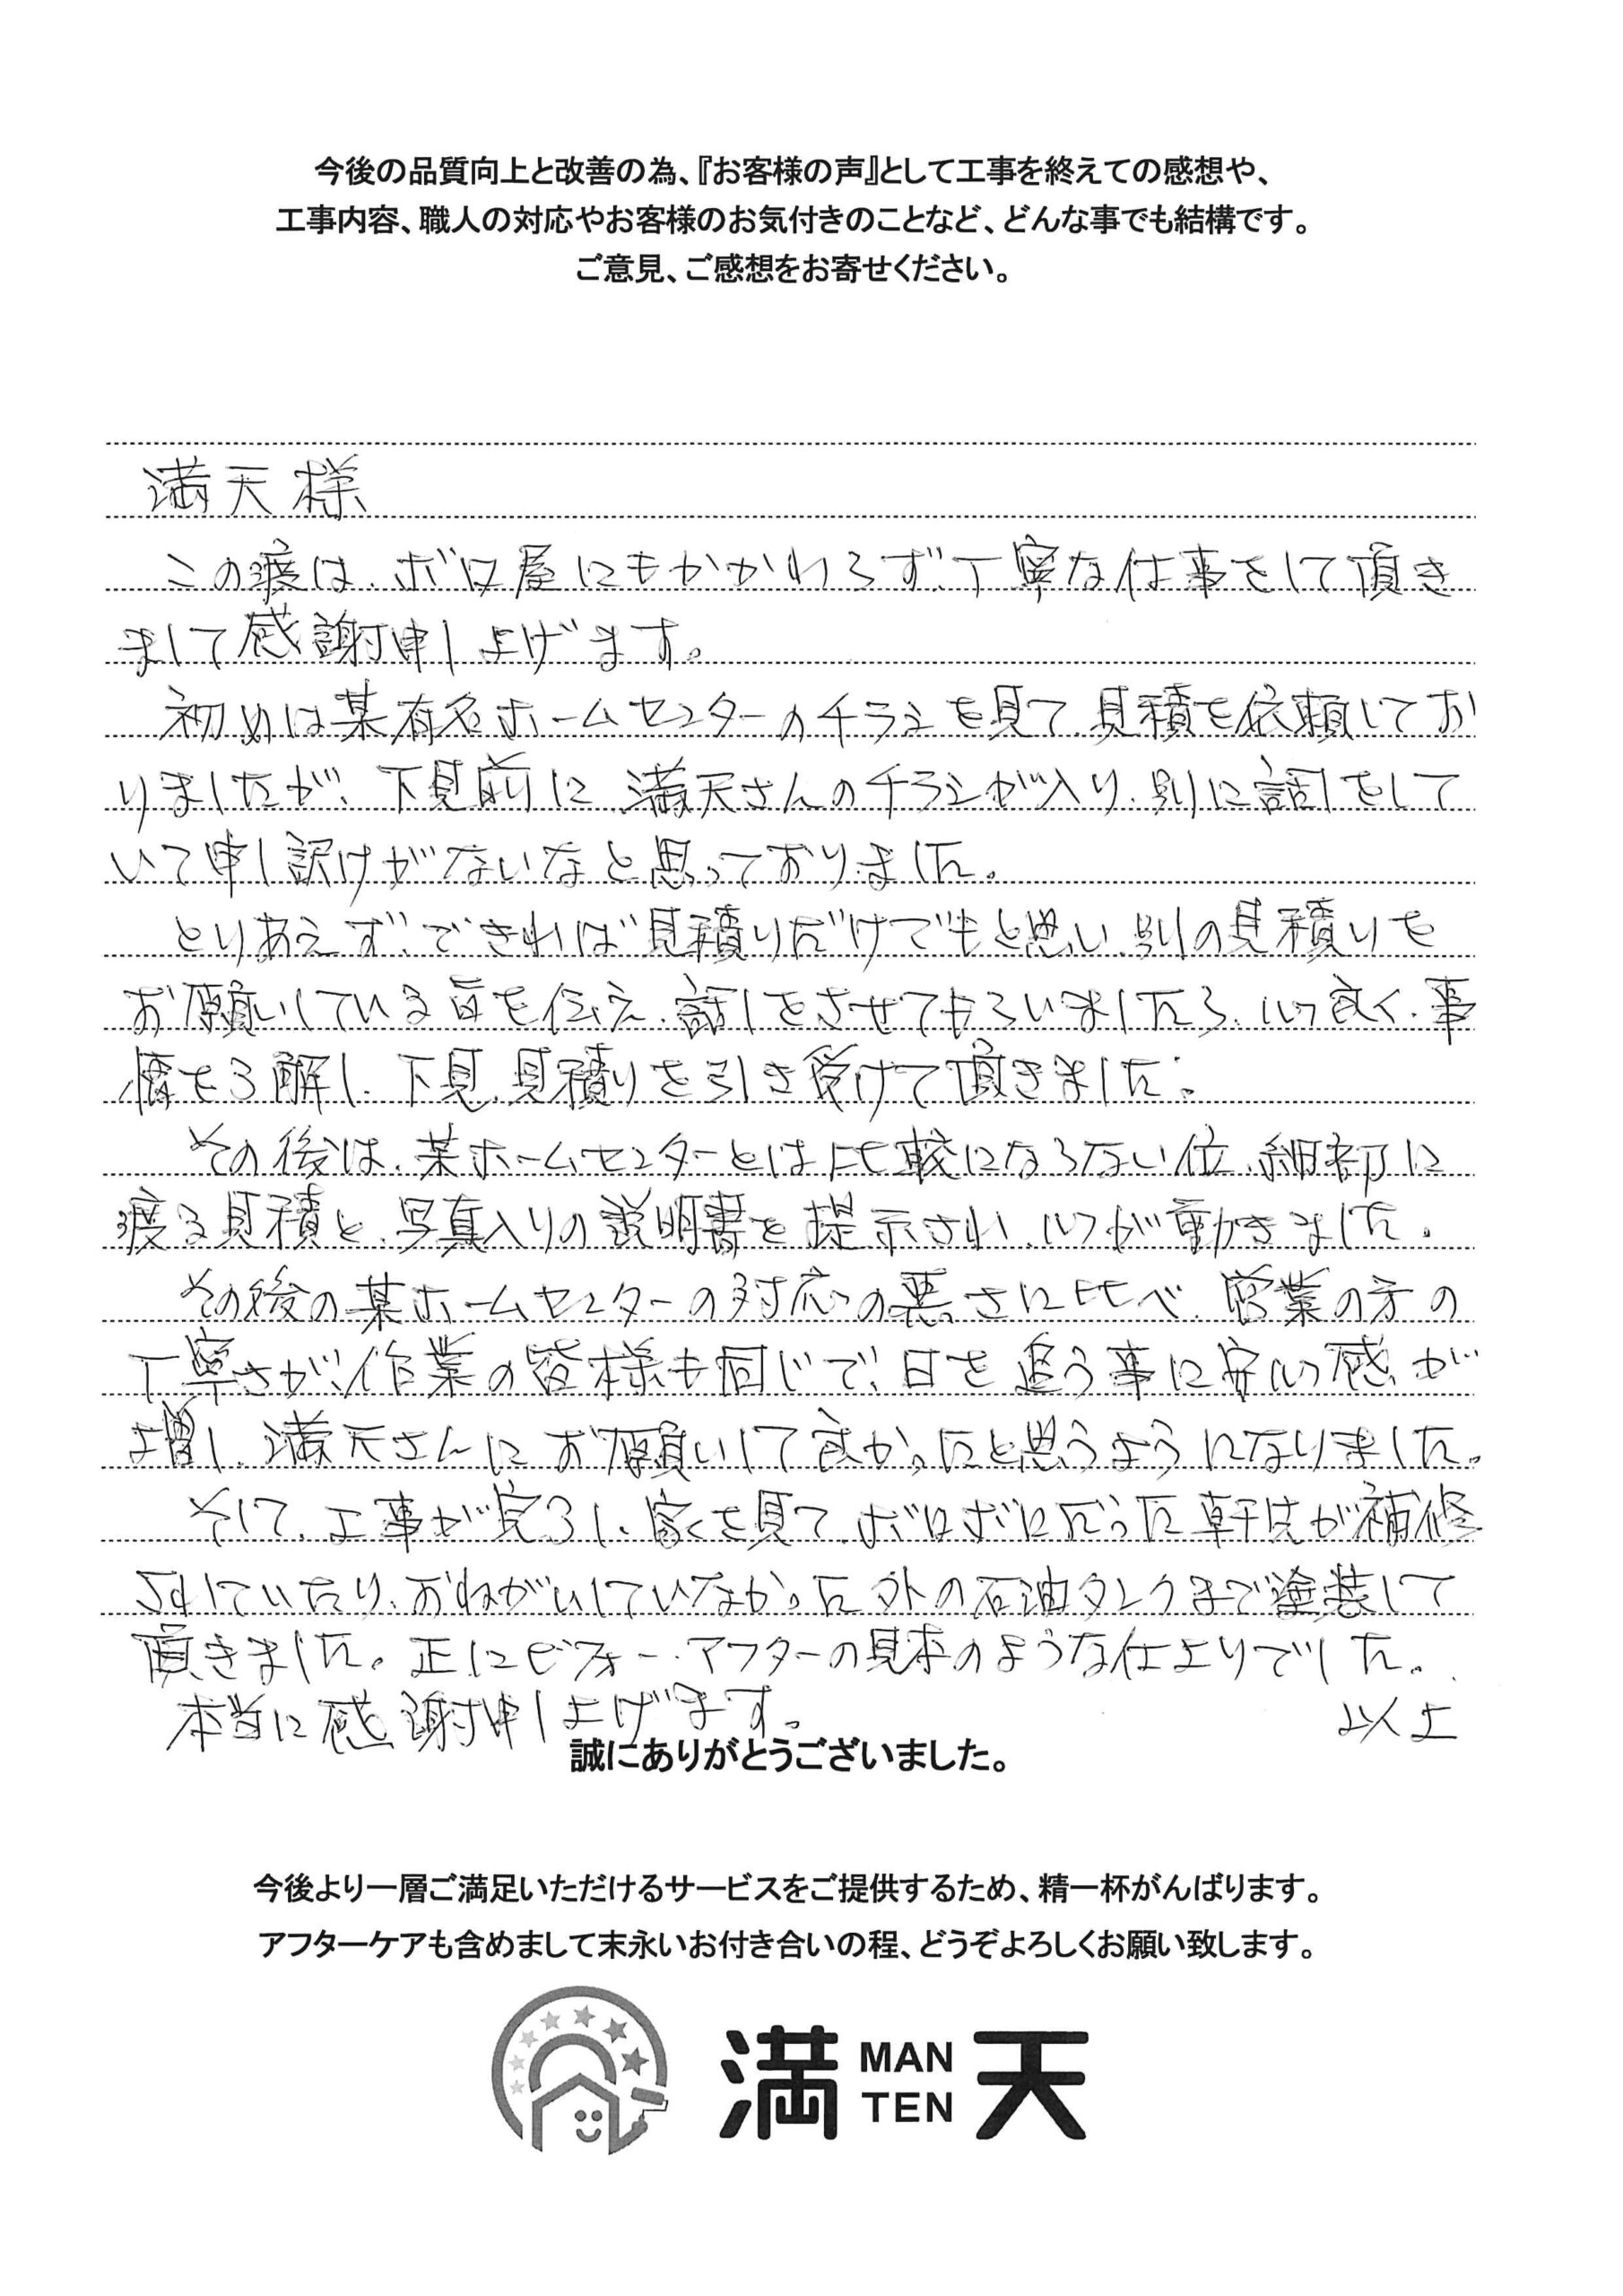 今後の品質向上と改善の為、『お客様の声』として工事を終えての感想や、
工事内容、職人の対応やお客様のお気付きのことなど、どんな事でも結構です。
ご意見、ご感想をお寄せください。
満天様
この渡は、ボロ屋にもかかわらず、丁寧な仕事をして頂き
まして感謝申し上げます。
初めは某有名ホームセンターのチラシを見て、見積を依頼してお
りましたが、下見前に、満天さんのチラシが入り、別に話をして
いて申し訳けがないなと思っておりました。
とりあえず、できれば見積りだけでもと思い、別の見積りを
お願いしている旨を伝え、話しをさせてもらいましたら、心良く、事
情を了解し、下見、見積りを引き受けて頂きました。
その後は、某ホームセンターとは比較にならない位、細部に
渡る見積と、写真入りの説明書を提示され、心が動きました。
その後の某ホームセンターの対応の悪さに比べ、営業の方の
丁寧さが、作業の皆様も同じで、日を追う事に安心感が
増し、満天さんにお願いして良かったと思うようになりました。
そして、工事が完了し、家を見て、ボロボロだった軒先が補修
されていたり、おねがいしていなかった外の石油タンクまで塗装して
頂きました。正にビフォー・アフターの見本のような仕上りでした。
本当に感謝申し上げます。 以上
誠にありがとうございました。
今後より一層ご満足いただけるサービスをご提供するため、精一杯がんばります。
アフターケアも含めまして末永いお付き合いの程、どうぞよろしくお願い致します。
満 MAN TEN 天